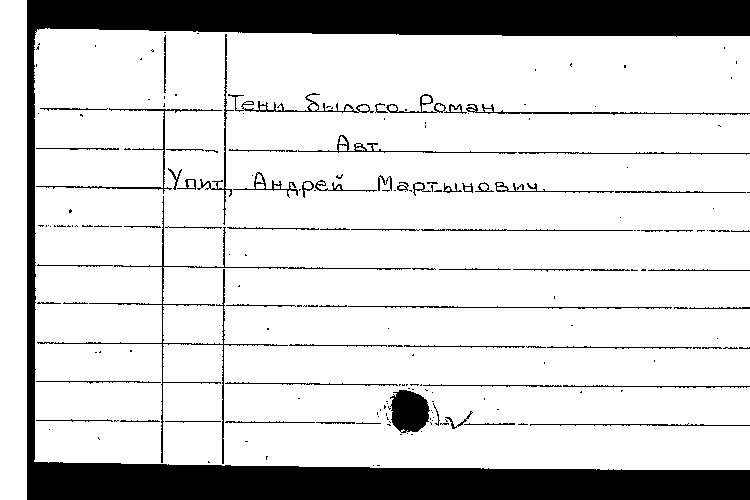 Тени былого. Роман.
Авт.
Упит, Андрей Мартынович.